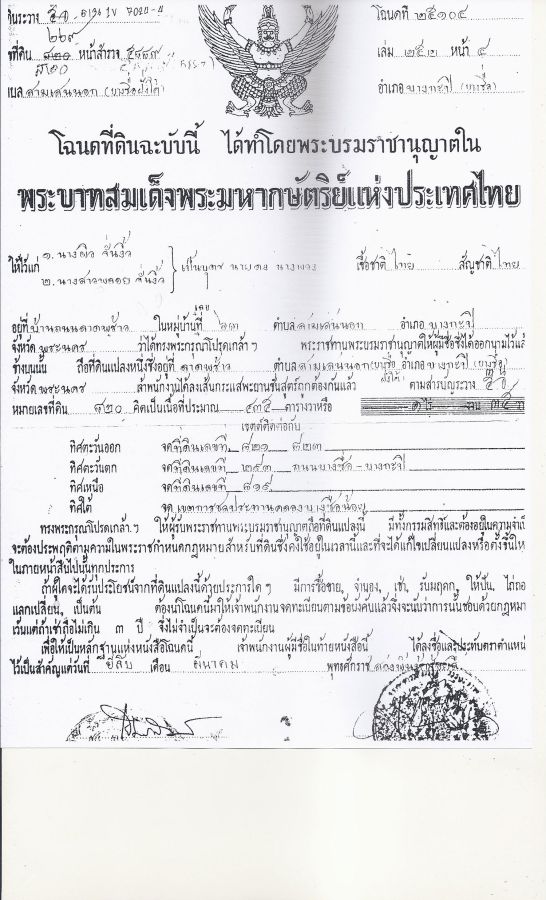 โฉนดที่ ๒๕๑๐๔
ที่ดิน ๘๒๐ หน้าสำรวจ
เล่ม ๒๕๒ หน้า ๔
สามเสนนอก (บางซื่อฝั่งใต้)
อำเภอ บางกะปิ (บางซื่อ)
โฉนดที่ดินฉะบับนี้ ได้ทำโดยพระบรมราชานุญาตใน
พระบาทสมเด็จพระมหากษัตริย์แห่งประเทศไทย
๑. นางผิว จั่นงิ้ว
ให้ไว้แก่ เป็นบุตร นายคง เชื้อชาติ ไทย สัญชาติ ไทย
๒. นางสาวพลอย จั่นงิ้ว
อยู่ที่ บ้านถนนลาดพร้าว ในหมู่บ้านที่ ตำบล สามเสนนอก อำเภอ บางกะปิ
จังหวัด พระนคร ว่าได้ทรงพระกรุณาโปรดเกล้า ฯ พระราชทานพระบรมราชานุญาตให้ผู้มีชื่อซึ่งได้ออกนามไว้แล้
ข้างบนนั้น ถือที่ดินแปลงหนึ่งซึ่งอยู่ที่ ลาดพร้าว ตำบล สามเสนนอก (บางซื่อฝั่งใต้) อำเภอ บางกะปิ (บางซื่อ)
จังหวัด พระนคร เจ้าพนักงานได้ลงเส้นกระแสพระยานชัณสูตรถูกต้องกันแล้ว ตามสารบัญระวาง
หมายเลขที่ดิน ๘๒๐ คิดเป็นเนื้อที่ประมาณ ๔๓๕ ตารางวาหรือ ๑ ไร่ งาน ๓๕
เขตต์ติดต่อกับ
ทิศตะวันออก จดที่ดินเลขที่ ๘๒๑ ๘๒๓
ทิศตะวันตก จดที่ดินเลขที่ ๒๕๓ ถนนบางซื่อ-บางกะปิ
ทิศเหนือ จดที่ดินเลขที่ ๘๑๙
ทิศใต้ จดเขตการชลประทานคลองบางซื่อน้อย
ทรงพระกรุณาโปรดเกล้า ฯ ให้ผู้รับพระราชทานพระบรมราชานุญาตถือที่ดินแปลงนี้ มีทั้งกรรมสิทธิ์และต้องอยู่ในความจำเ
จะต้องประพฤติตามความในพระราชกำหนดกฎหมายสำหรับที่ดินซึ่งคงใช้อยู่ในเวลานี้และที่จะได้แก้ไขเปลี่ยนแปลงหรือตั้งขึ้นให
ในภายหน้าสืบไปนั้นทุกประการ
ถ้าผู้ใดจะได้รับประโยชน์จากที่ดินแปลงนี้ด้วยประการใด ๆ มีการซื้อขาย, จำนอง, เช่า, รับมฤดก, ให้ปัน, ไถ่ถอ
แลกเปลี่ยน, เป็นต้น ต้องนำโฉนดนี้มาให้เจ้าพนักงานจดทะเบียนตามข้อบังคับแล้วจึ่งจะนับว่าการนั้นชอบด้วยกฎหมา
เว้นแต่ถ้าเช่าถือไม่เกิน ๓ ปี จึ่งไม่จำเป็นจะต้องจดทะเบียน
เพื่อให้เป็นหลักฐานแห่งหนังสือโฉนดนี้ เจ้าพนักงานผู้มีชื่อในท้ายหนังสือนี้ ได้ลงชื่อและประทับตราตำแหน่
ไว้เป็นสำคัญแต่วันที่ ยี่สิบ เดือน มีนาคม พุทธศักราช